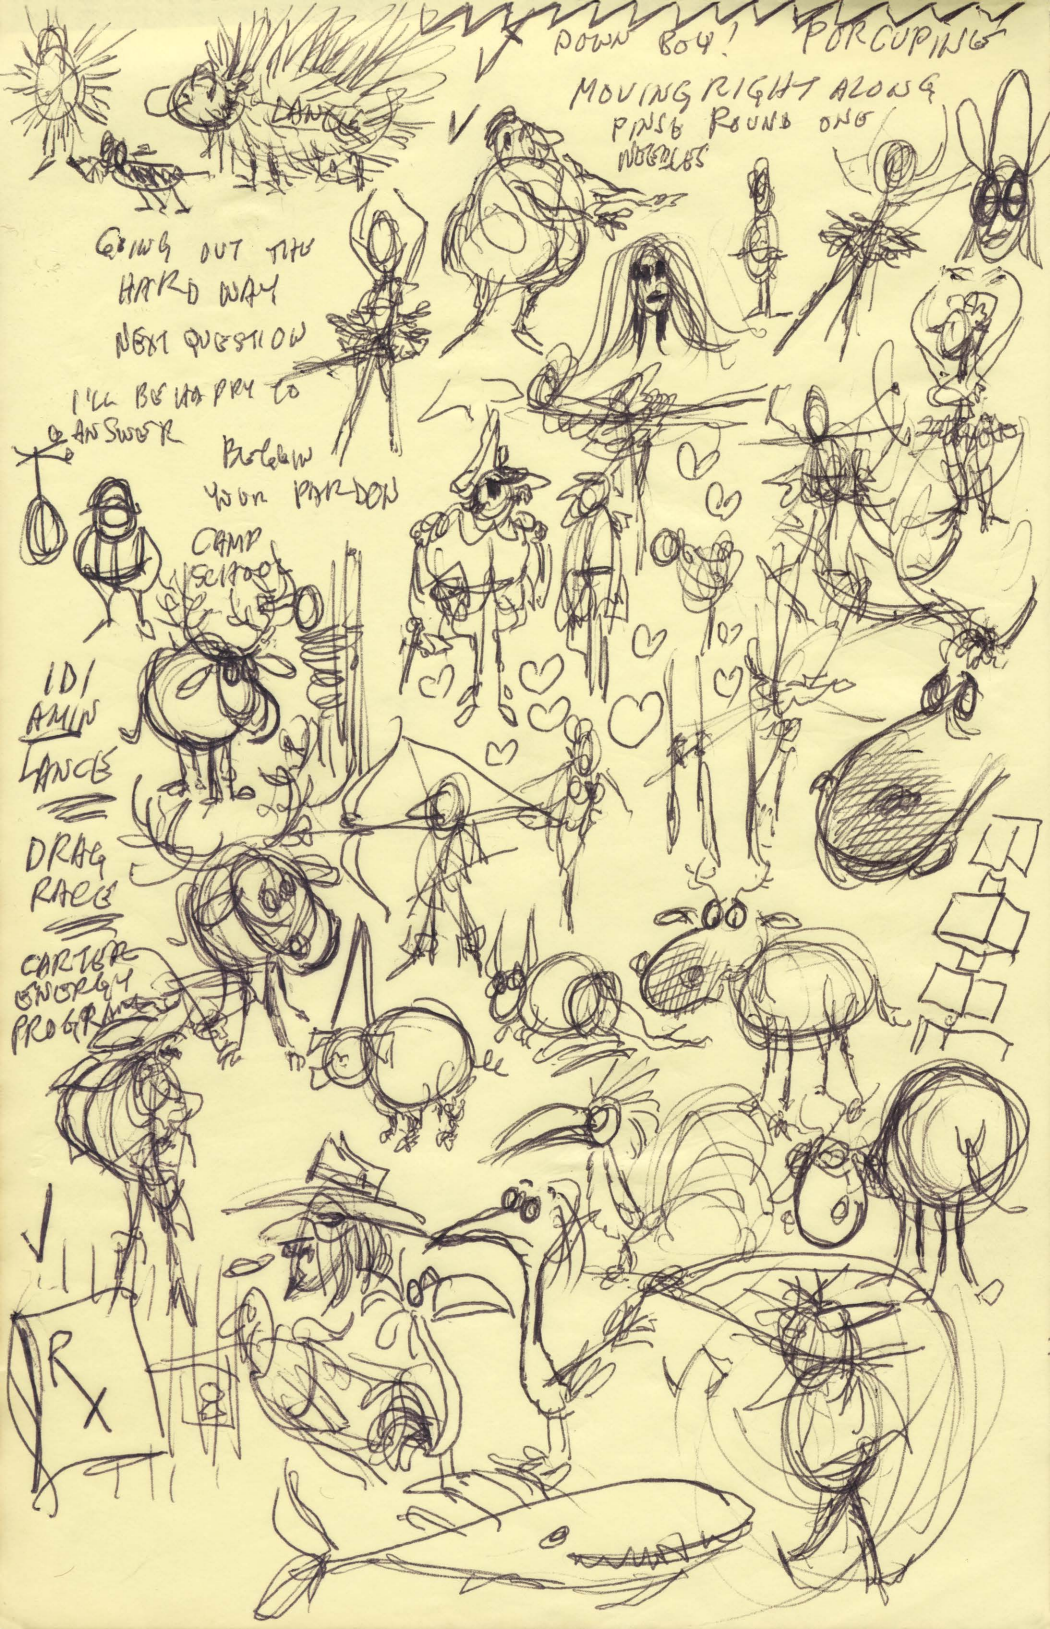 DOWN BOY! PORCUPINE
MOVING RIGHT ALONG
PINE ROUND ONE
NEEDLES
LANCE
GOING OUT THE
HARD WAY
NEXT QUESTION
I'LL BE HAPPY TO
ANSWER
BEGGIN
YOUR PARDON
CAMP
SCHOOL
IDI
AMIN
LANCE
DRAG
RACE
CARTER
ENERGY
PROGRAM
RX